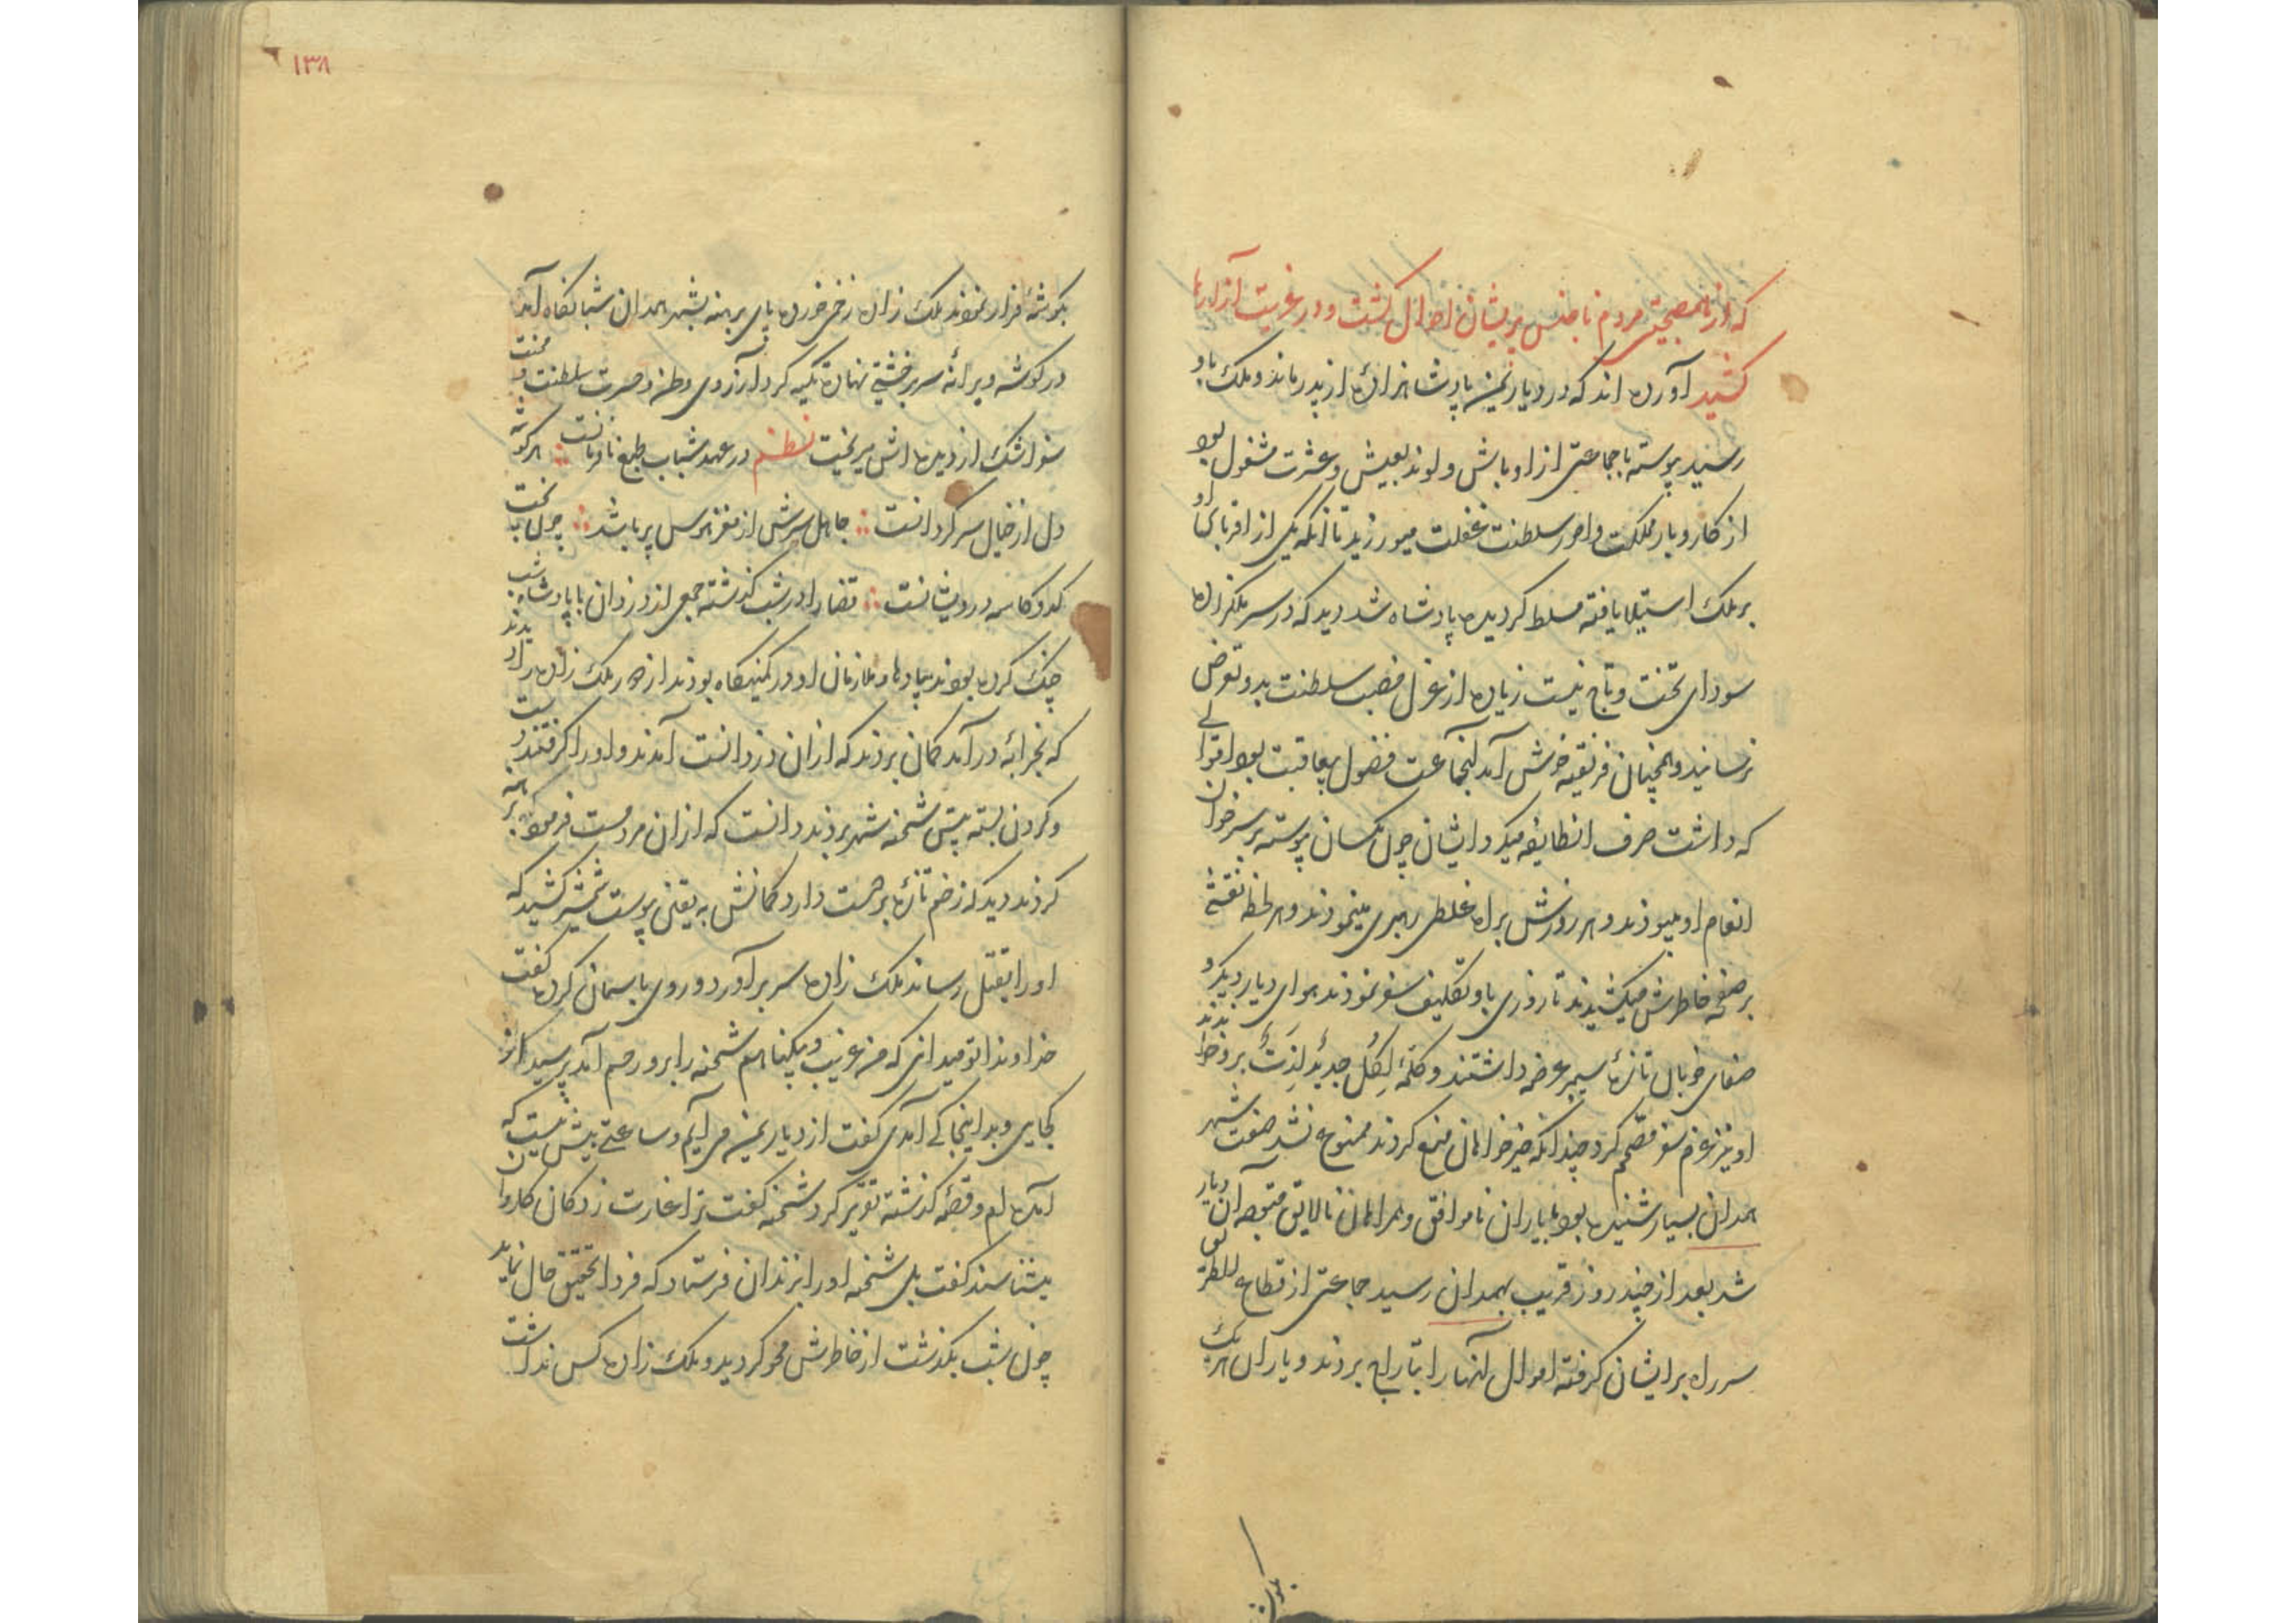 که از همصحبتی مردم ناجنس پریشان احوال گشت و در غربت آزارها
کشید آورده اند که در دیار یمن پادشاهزاده از پدر ماند و ملک باو
رسید پیوسته با جماعتی از اوباش و لوند بعیش و عشرت مشغول بود
از کار و بار مملکت و امور سلطنت غفلت میورزید تا آنکه یکی از اقربای او
بر ملک استیلا یافته مسلط گردیده پادشاه شد دید که در سر ملکزاده
سودای تخت و تاج نیست زیاده از عزل منصب سلطنت بدو تعرض
نرسانید و همچنان فریفته خوش آمد آنجماعت فضول بیعاقبت بود
که داشت صرف انطایفه میکرد و ایشان چون مکسان پیوسته بر سر خوان
انعام او میبودند و هر روزش براه غلطی رهبری مینمودند و هر لحظه نقشی
بر صفحه خاطرش میکشیدند تا روزی باو تکلیف سفر نمودند هوای دیار دیگر و
صفای خوبان تازه عرضه داشتند و کلمهٔ لِکُل جدیدٌ لِذَتٌ برو خواندند
او نیز عزم سفر مصمم کرد چندانکه خیرخواهان منع کردند ممنوع نشد صفت شهر
همدان بسیار شنیده بود با یاران ناموافق و همراهان نالایق متوجه آن دیار
شد بعد از چند روز قریب بهمدان رسید جماعتی از قطاع الطریق
سر راه بر ایشان گرفته اموال آنها را بتاراج بردند و یاران هر یک
بگوشهٔ
۱۳۸
بگوشهٔ فرار نمودند ملک زاده زخمی خورده پای برهنه بشهر همدان شبانگاه آمد
در گوشه ویرانه سر بر خشتی نهاده تکیه کرد از آرزوی وطن و حسرت سلطنت و محنت
سفر اشک از دیده اش میریخت نظم در عهد شباب طبع نافرمانست ؞ هر گوشه
دل از خیال سرگردانست ؞ جاهل سرش از مغز هوس پر باشد ؞ چون تخت
کدو کاسه درویشانست ؞ قضا را در شب گذشته جمعی از دزدان با پادشاه شب
جنگ کرده بودند پیادها و ملازمان او در کمینگاه بودند از دور ملک زاده را دیدند
که بخرابهٔ در آمد گمان بردند که از آن دزدانست آمدند و او را گرفتند دست
و گردن بسته پیش شحنه شهر بردند دانست که از آن مردمست فرمود برهنه
کردند دید که زخم تازه بر دست دارد گمانش به یقین پیوست شمشیر کشید که
او را بقتل رساند ملک زاده سر برآورد و روی باسمان کرده گفت
خداوندا تو میدانی که من غریب و بیگناهم شحنه را برو رحم آمد پرسید از
کجایی و بدینجا کی آمدی گفت از دیار یمن می آیم و ساعتی بیش نیست که
آمده ام و قصهٔ گذشته تقریر کرد شحنه گفت ترا غارت زدگان کاروان
بشناسند گفت بلی شحنه او را بزندان فرستاد که فردا تحقیق حال نماید
چون شب بگذشت از خاطرش محو گردید و ملک زاده کس نداشت